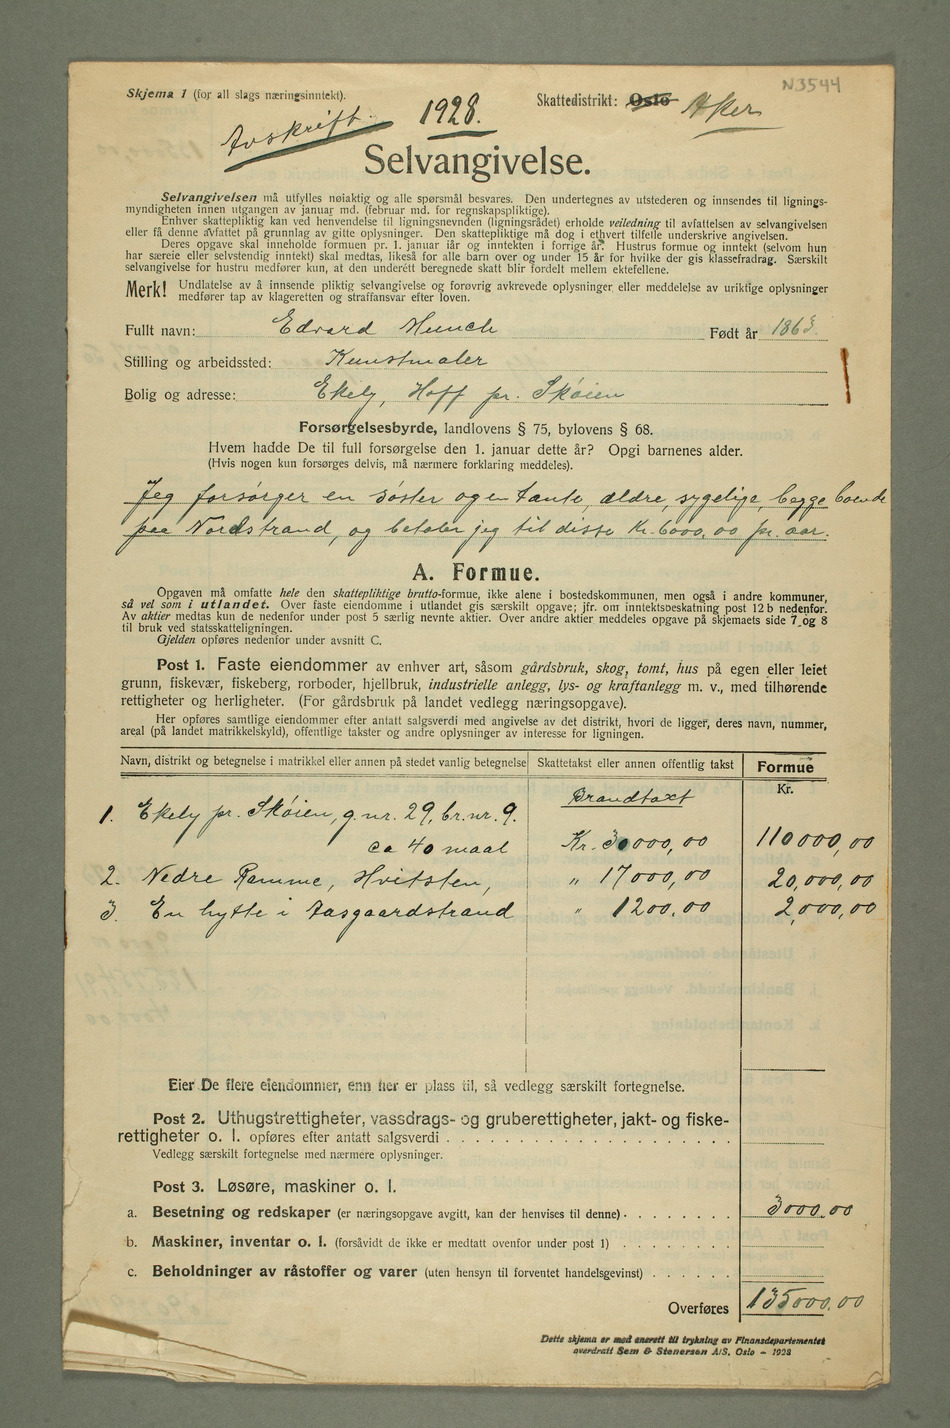 N3544
Skjema 1 (for all slags næringsinntekt).
Skattedistrikt: Oslo Aker
Avskrift. 1928.
Selvangivelse.
Selvangivelsen må utfylles nøiaktig og alle spørsmål besvares. Den undertegnes av utstederen og innsendes til lignings-
myndigheten innen utgangen av januar md. (februar md. for regnskapspliktige).
Enhver skattepliktig kan ved henvendelse til ligningsnevnden (ligningsrådet) erholde veiledning til avfattelsen av selvangivelsen
eller få denne avfattet på grunnlag av gitte oplysninger. Den skattepliktige må dog i ethvert tilfelle underskrive angivelsen.
Deres opgave skal inneholde formuen pr. 1. januar iår og inntekten i forrige år. Hustrus formue og inntekt (selvom hun
har særeie eller selvstendig inntekt) skal medtas, likeså for alle barn over og under 15 år for hvilke der gis klassefradrag. Særskilt
selvangivelse for hustru medfører kun, at den underett beregnede skatt blir fordelt mellem ektefellene.
Merk! Undlatelse av å innsende pliktig selvangivelse og forøvrig avkrevede oplysninger eller meddelelse av uriktige oplysninger
medfører tap av klageretten og straffansvar efter loven.
Fullt navn: Edvard Munch Født år 1863.
Stilling og arbeidssted: Kunstmaler
Bolig og adresse: Ekely, Hoff pr. Skøien
Forsørgelsesbyrde, landlovens § 75, bylovens § 68.
Hvem hadde De til full forsørgelse den 1. januar dette år? Opgi barnenes alder.
(Hvis nogen kun forsørges delvis, må nærmere forklaring meddeles).
Jeg forsørger en søster og en tante, ældre, sygelige, begge boende
paa Nordstrand, og betaler jeg til disse Kr. 6000,00 pr. aar.
A. Formue.
Opgaven må omfatte hele den skattepliktige brutto-formue, ikke alene i bostedskommunen, men også i andre kommuner,
så vel som i utlandet. Over faste eiendomme i utlandet gis særskilt opgave; jfr. om inntektsbeskatning post 12 b nedenfor.
Av aktier medtas kun de nedenfor under post 5 særlig nevnte aktier. Over andre aktier meddeles opgave på skjemaets side 7 og 8
til bruk ved statsskatteligningen.
Gjelden opføres nedenfor under avsnitt C.
Post 1. Faste eiendommer av enhver art, såsom gårdsbruk, skog, tomt, hus på egen eller leiet
grunn, fiskevær, fiskeberg, rorboder, hjellbruk, industrielle anlegg, lys- og kraftanlegg m. v., med tilhørende
rettigheter og herligheter. (For gårdsbruk på landet vedlegg næringsopgave).
Her opføres samtlige eiendommer efter antatt salgsverdi med angivelse av det distrikt, hvori de ligger, deres navn, nummer,
areal (på landet matrikkelskyld), offentlige takster og andre oplysninger av interesse for ligningen.
Navn, distrikt og betegnelse i matrikkel eller annen på stedet vanlig betegnelse Skattetakst eller annen offentlig takst Formue
Kr.
Brandtaxt
1. Ekely pr. Skøien, g.nr. 29, br.nr. 9.
ca 40 maal Kr. 30000,00 110000,00
2. Nedre Ramme, Hvitsten, " 17000,00 20,000,00
3. En hytte i Aasgaardstrand " 1200,00 2,000,00
Eier De flere eiendommer, enn her er plass til, så vedlegg særskilt fortegnelse.
Post 2. Uthugstrettigheter, vassdrags- og gruberettigheter, jakt- og fiske-
rettigheter o. l. opføres efter antatt salgsverdi
Vedlegg særskilt fortegnelse med nærmere oplysninger.
Post 3. Løsøre, maskiner o. l.
a. Besetning og redskaper (er næringsopgave avgitt, kan der henvises til denne) 3000,00
b. Maskiner, inventar o. l. (forsåvidt de ikke er medtatt ovenfor under post 1)
c. Beholdninger av råstoffer og varer (uten hensyn til forventet handelsgevinst)
Overføres 135000,00
Dette skjema er med enerett til trykning av Finansdepartementet
overdratt Sem & Stenersen A/S, Oslo – 1928